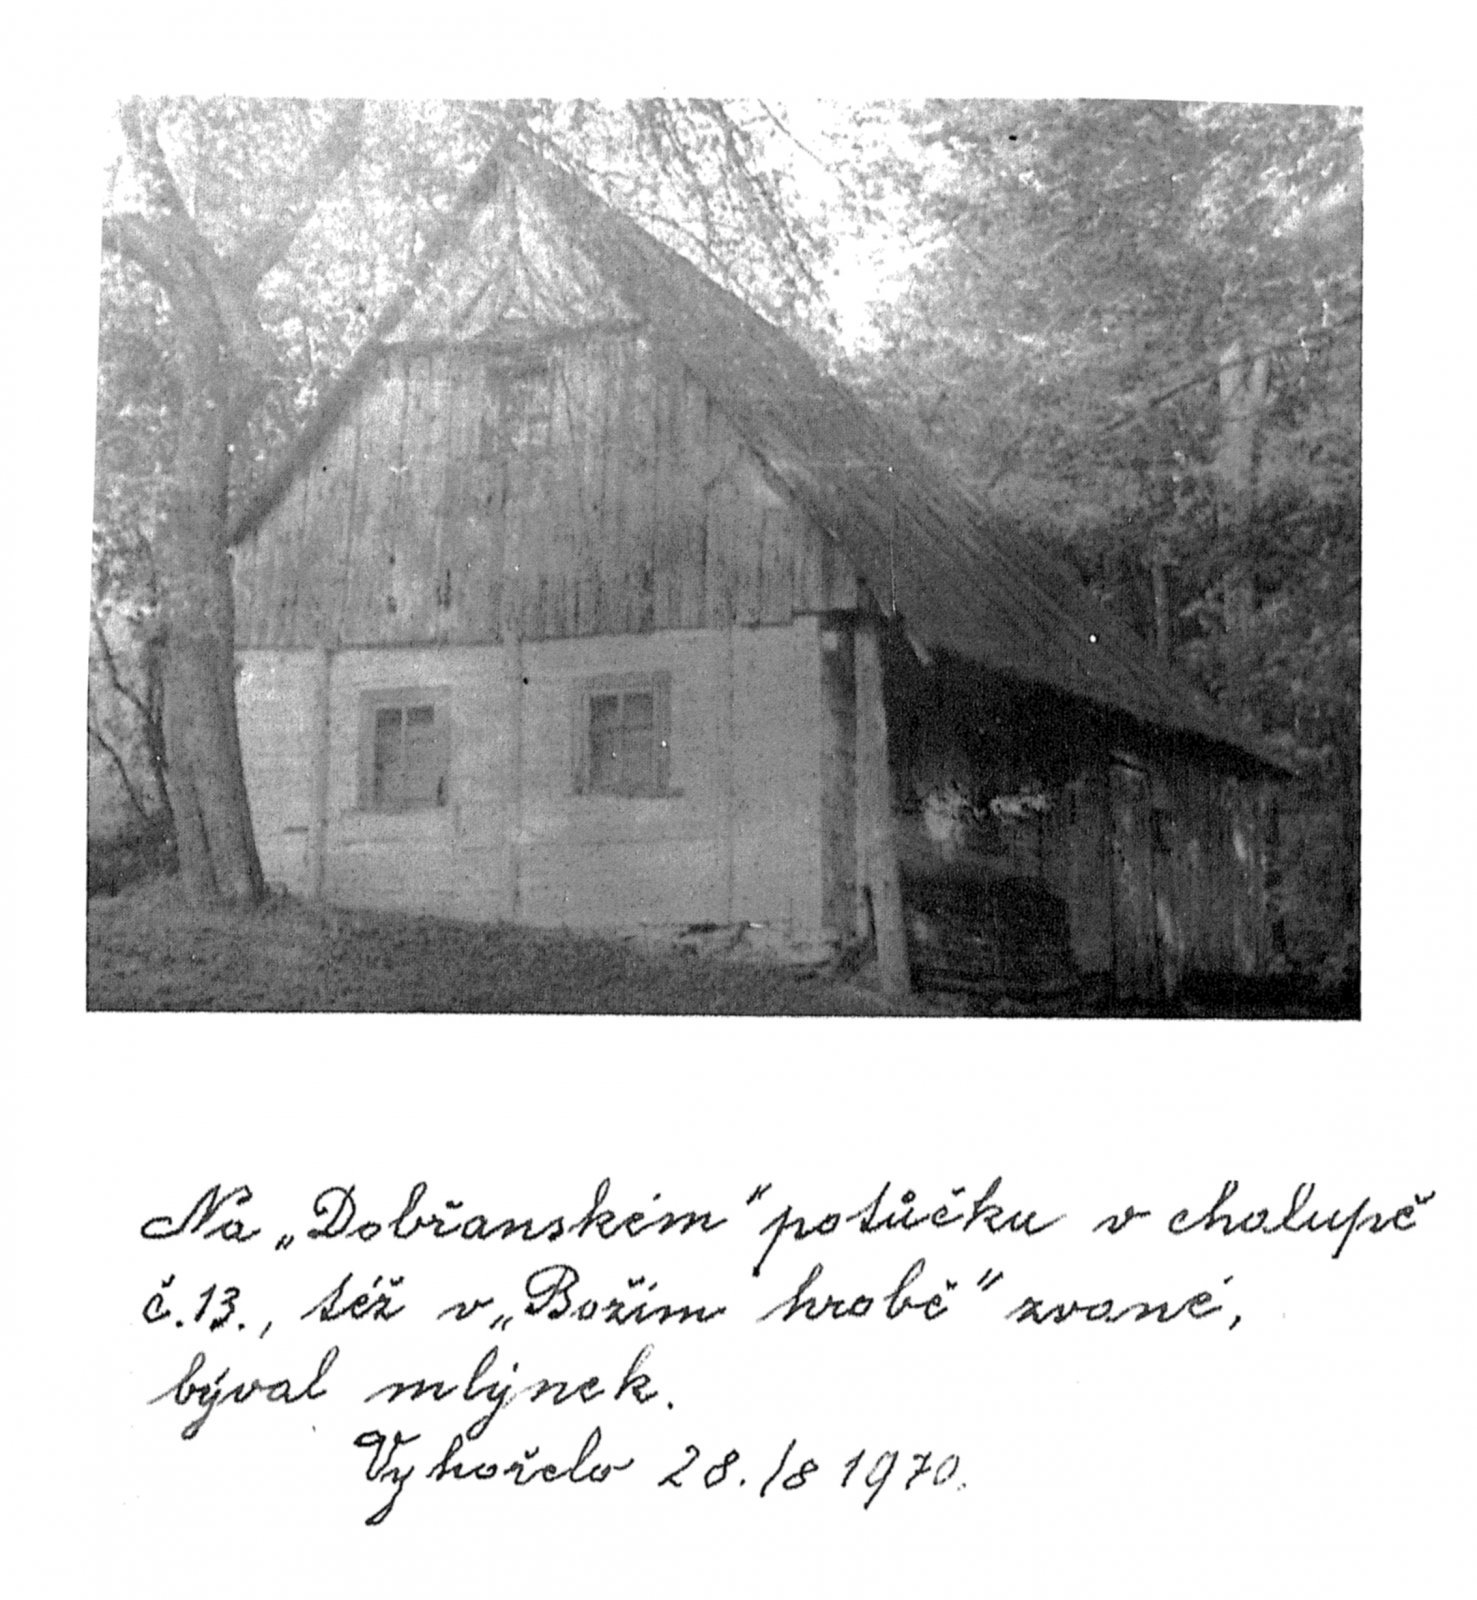 Na „Dobřanském" potůčku v chalupě
č.13., též v „Božím hrobě" zvané,
býval mlýnek.
Vyhořelo 28./8 1970.